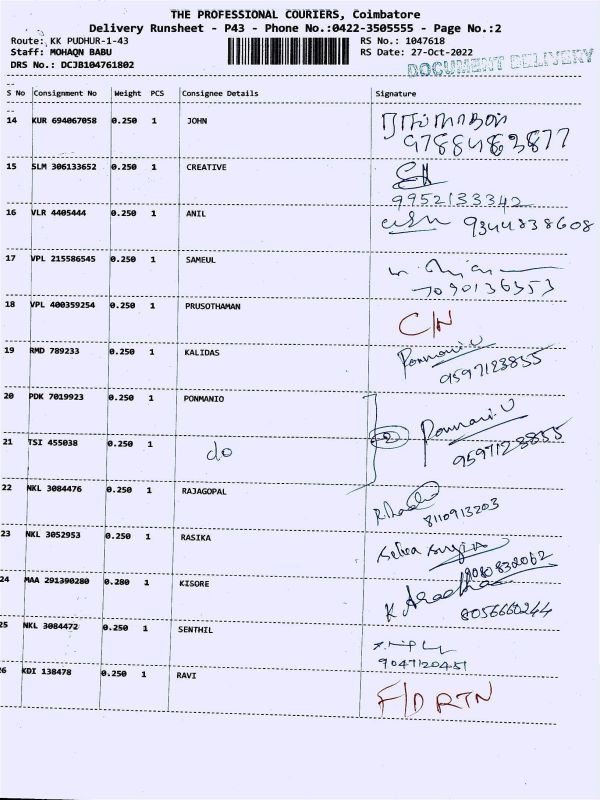 THE PROFESSIONAL COURIERS, Coimbatore
Delivery Runsheet - P43 - Phone No.:0422-3505555 - Page No.:2
Route: KK PUDHUR-1-43 RS No.: 1047618
Staff: MOHAQN BABU RS Date: 27-Oct-2022
DRS No.: DCJB104761802 DOCUMENT DELIVERY
S No Consignment No Weight PCS Consignee Details Signature
14 KUR 694067058 0.250 1 JOHN
9788463877
15 SLM 306133652 0.250 1 CREATIVE
9952133342
16 VLR 4405444 0.250 1 ANIL 9344838608
17 VPL 215586545 0.250 1 SAMEUL
7090136353
18 VPL 400359254 0.250 1 PRUSOTHAMAN C/N
19 RMD 789233 0.250 1 KALIDAS Ponmani.U
9597123855
20 PDK 7019923 0.250 1 PONMANIO Ponmani.U
21 TSI 455038 0.250 1 do 2 9597123855
22 NKL 3084476 0.250 1 RAJAGOPAL
8110913203
23 NKL 3052953 0.250 1 RASIKA
9080832062
24 MAA 291390280 0.280 1 KISORE
8056660244
25 NKL 3084472 0.250 1 SENTHIL
9047120451
26 KDI 138478 0.250 1 RAVI F/D RTN